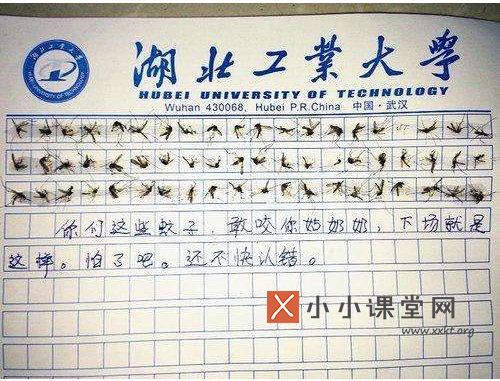 湖北工業大學
HUBEI UNIVERSITY OF TECHNOLOGY
Wuhan 430068, Hubei P.R.China 中国·武汉
你们这些蚊子，敢咬你姑奶奶，下场就是
这样。怕了吧。还不快认错。
X 小小课堂网
www.xxkt.org